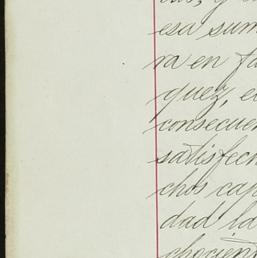 esa sum
ra en fa
quez, e
consecuen
satisfech
chos cap
dad la
chocient